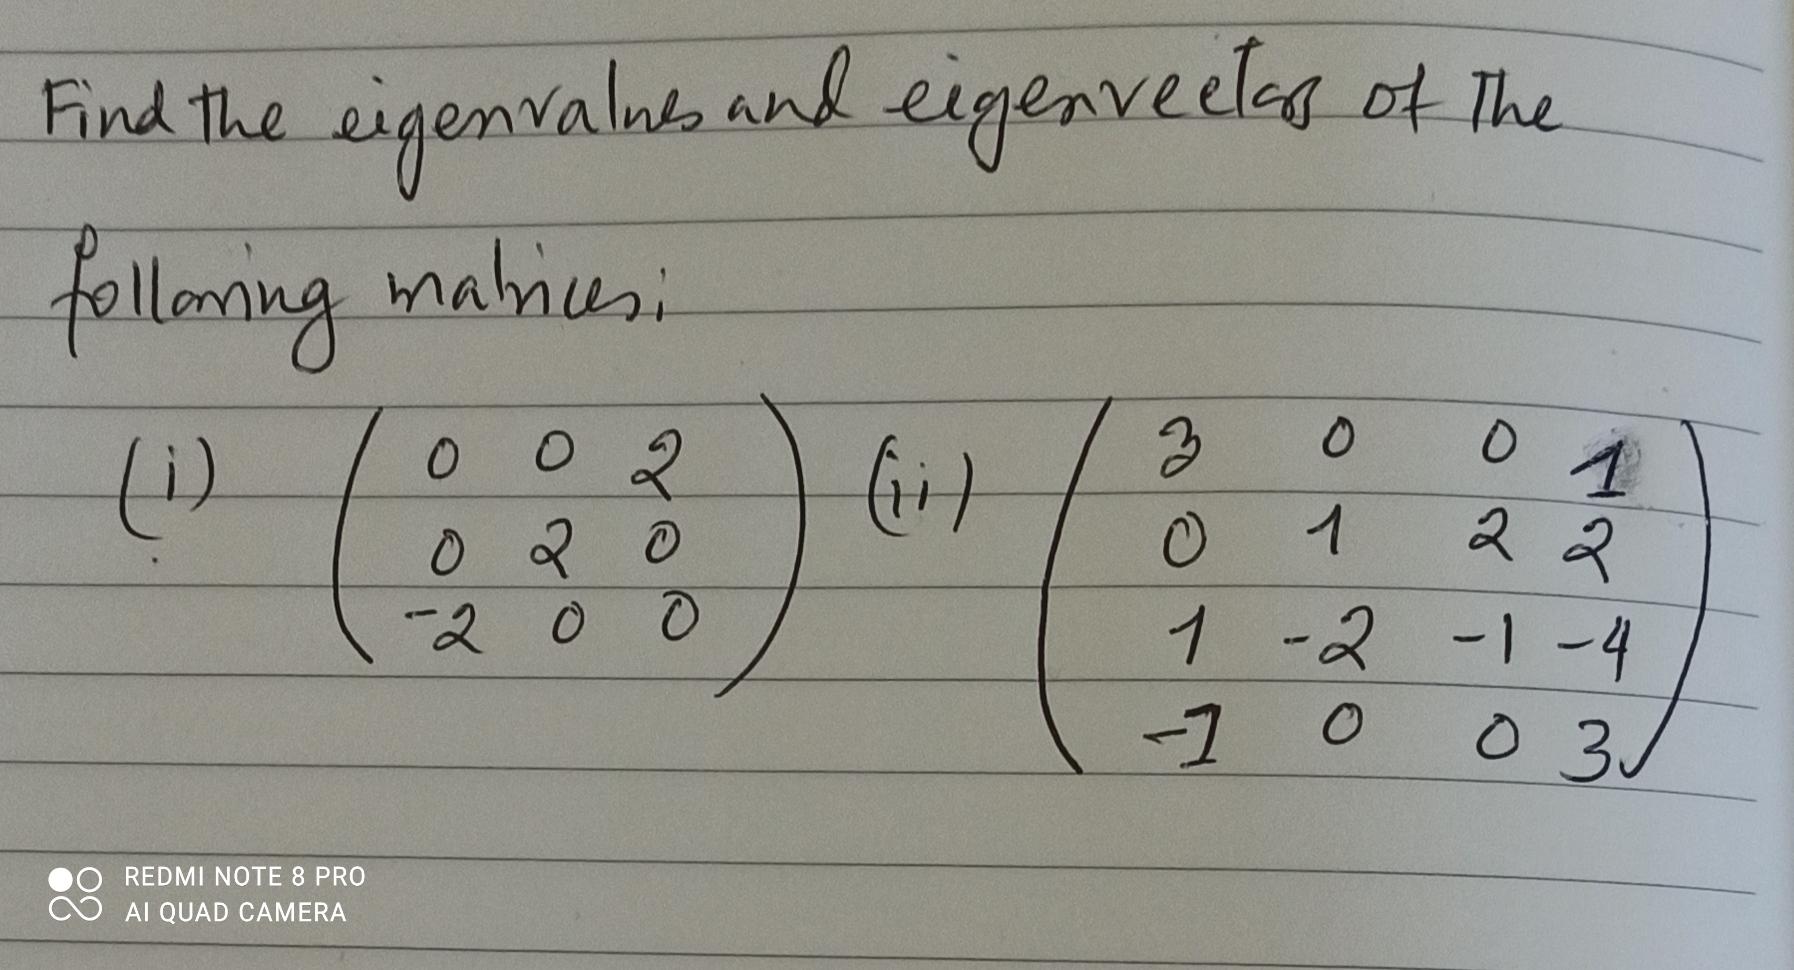 Find the eigenvalues and eigenvectors of the
following matrices;
(i) ( 0 0 2 (ii) ( 3 0 0 1
0 2 0 0 1 2 2
-2 0 0 ) 1 -2 -1 -4
-1 0 0 3 )
REDMI NOTE 8 PRO
AI QUAD CAMERA